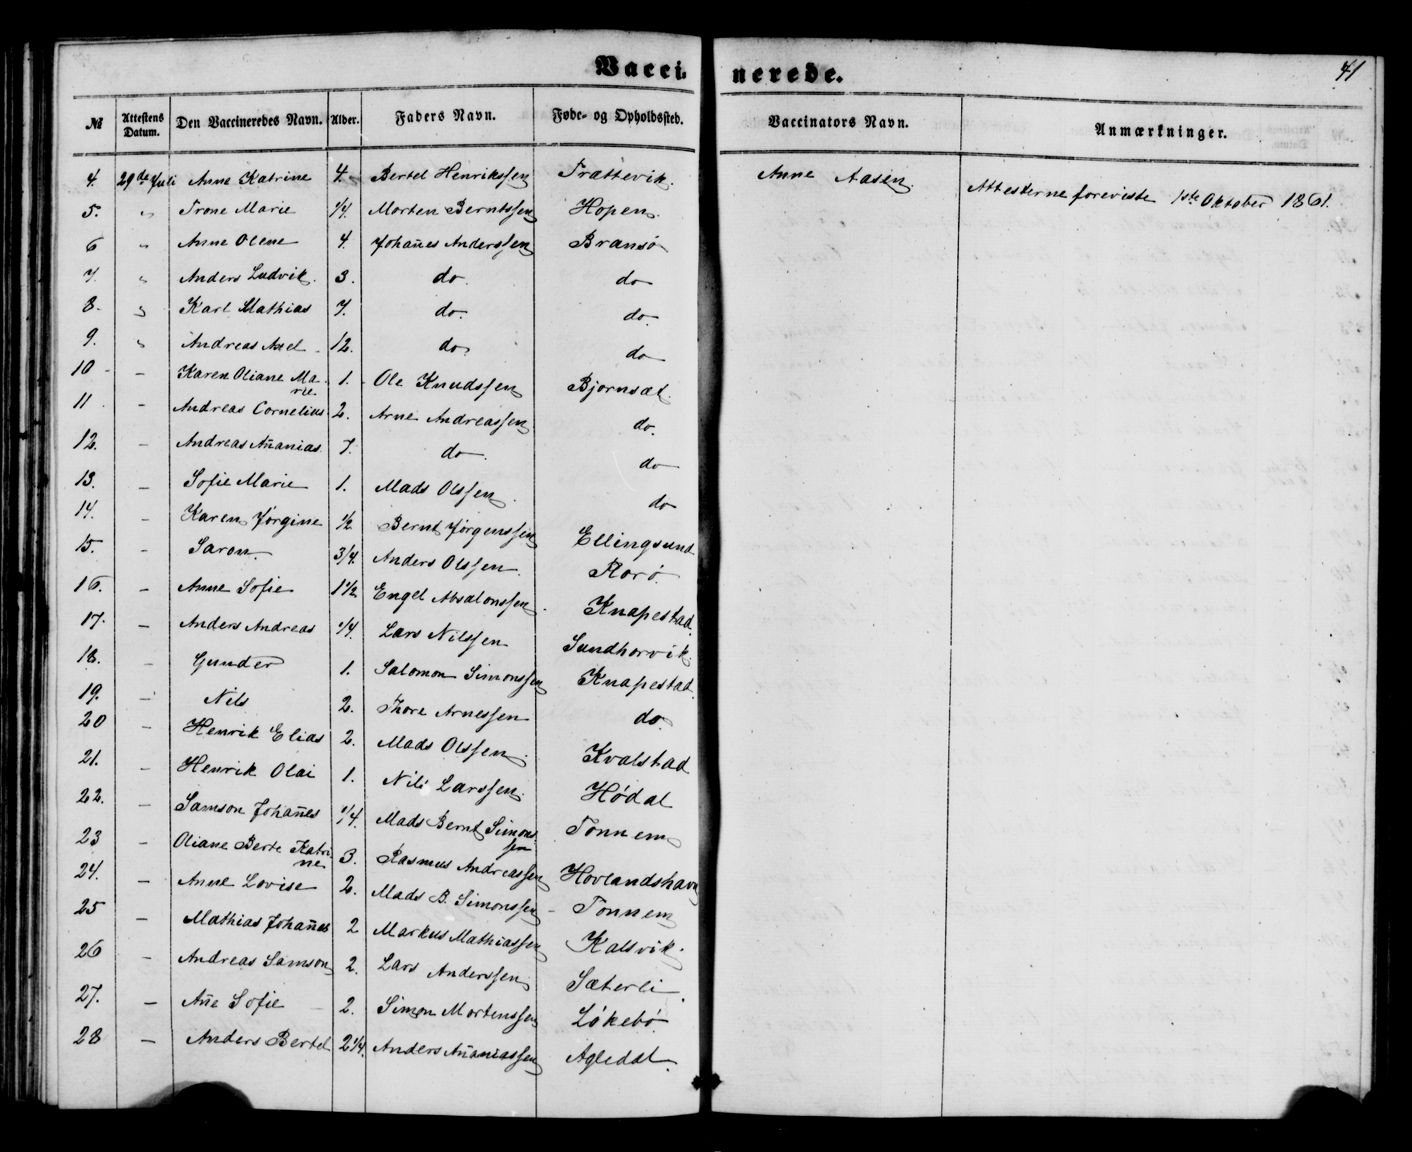 Vaccinerede.
41
№ | Attestens Datum. | Den Vaccineredes Navn. | Alder. | Faders Navn. | Føde- og Opholdssted. | Vaccinators Navn. | Anmærkninger.
4. | 29de Juli | Anne Katrine | 4. | Bertel Henrikssen | Trættevik. | Anne Aasen. | Attesterne foreviste 1ste Oktober 1861.
5. | " | Trone Marie | 1/4. | Morten Berntssen | Hopen.
6 | " | Anne Olene | 4. | Johan̄es Anderssen | Bransø
7. | " | Anders Ludvik. | 3. | do. | do
8. | " | Karl Mathias | 7. | do. | do.
9. | " | Andreas Axel. | 12. | do. | do
10 | - | Karen Oliane Marie | 1. | Ole Knudssen | Bjornset.
11. | - | Andreas Cornelius | 2. | Arne Andreassen | do.
12. | - | Andreas An̄anias. | 7. | do. | do
13. | - | Sofie Marie | 1. | Mads Olssen. | do
14. | - | Karen Jørgine | 1/2 | Bernt Jørgenssen | Ellingsund
15. | - | Saron. | 3/4. | Anders Olssen. | Rorø.
16. | - | Anne Sofie | 1 1/2 | Engel Absalonssen. | Knapestad.
17. | - | Anders Andreas | 1/4. | Lars Nilssen | Sundhorvik.
18. | - | Gunder | 1. | Salomon Simonssen | Knapestad.
19. | - | Nils | 2. | Thore Arnessen | do.
20 | - | Henrik Elias | 2. | Mads Olssen. | Kvalstad
21. | - | Henrik Olai | 1. | Nils Larssen. | Hødal
22. | - | Samson Johan̄es | 1/4. | Mads Bernt Simonssen | Tonnem
23 | - | Oliane Berte Katrine | 3. | Rasmus Andreassen | Hovlandshavn
24. | - | Anne Lovise | 2. | Mads B. Simonssen | Tonnem
25 | - | Mathias Johan̄es | 2 | Markus Mathiassen | Kalsvik.
26 | - | Andreas Samson | 2. | Lars Anderssen. | Sæterli.
27. | - | An̄e Sofie | 2. | Simon Mortenssen | Løkebø.
28 | - | Anders Bertel | 2 1/4. | Anders An̄aniassen | Agledal.